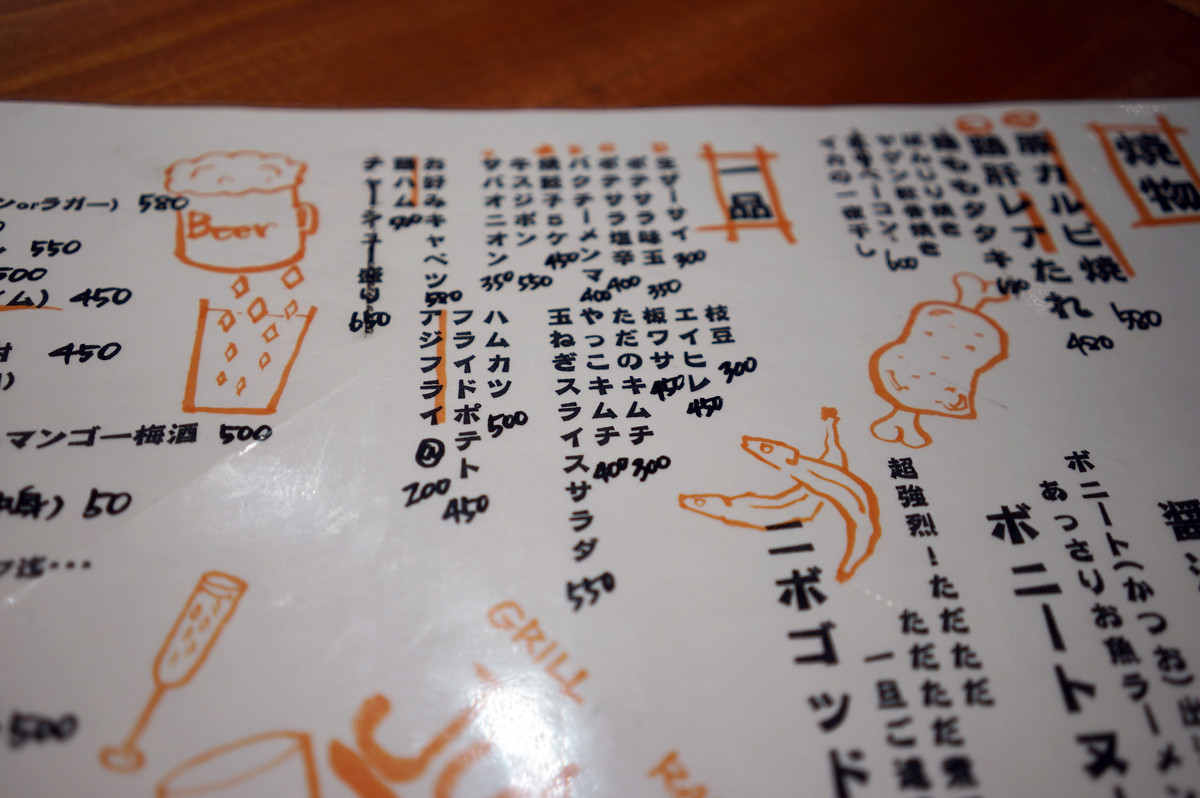 焼物
豚カルビ焼 580
鶏肝レアたれ 480
鶏ももタタキ
ぼんじり焼き
ヤゲン軟骨焼き
イカの一夜干し
一品
生ザーサイ 300
ポテサラ味玉 350
ポテサラ塩辛 400
パクチーメンマ 400
餃子5ケ 450
牛スジポン 550
サバオニオン 350
お好みキャベツ 580
鶏ハム
チャーシュー盛り 650
枝豆 300
エイヒレ 450
板ワサ 450
ただのキムチ 300
やっこキムチ 400
玉ねぎスライスサラダ 550
ハムカツ 500
フライドポテト 450
アジフライ @ 200
ボニート(かつお)出
あっさりお魚ラーメン
ボニートヌ
超強烈!ただただ
ただただ煮
一旦ご遠
ニボゴッド
Beer
ンorラガー) 580
550
500
450
450
マンゴー梅酒 500
50
500
GRILL